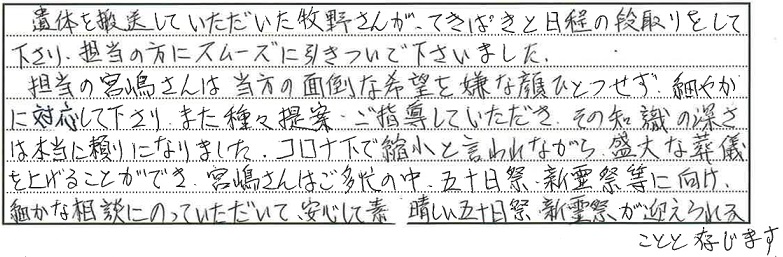 遺体を搬送していただいた牧野さんが、てきぱきと日程の段取りをして
下さり、担当の方にスムーズに引きついで下さいました。
担当の宮嶋さんは当方の面倒な希望を嫌な顔ひとつせず、細やか
に対応して下さり、また種々提案・ご指導していただき、その知識の深さ
は本当に頼りになりました。コロナ下で縮小と言われながら、盛大な葬儀
を上げることができ、宮嶋さんはご多忙の中、五十日祭、新霊祭等に向け、
細かな相談にのっていただいて、安心して素晴しい五十日祭、新霊祭が迎えられる
ことと存じます